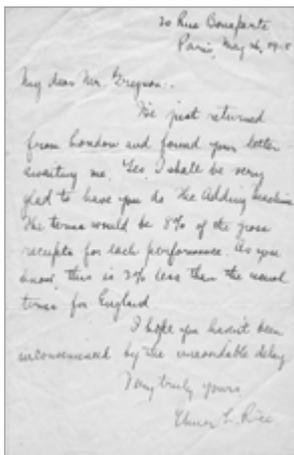 20 Rue Bonaparte
Paris, May 26, 19
My dear Mr. Gregson:
I've just returned
from London and found your letter
awaiting me. Yes, I shall be very
glad to have you do The Adding Machine
The terms would be 8% of the gross
receipts for each performance. As you
know, this is 2% less than the usual
terms for England
I hope you haven't been
inconvenienced by the unavoidable delay
Very truly yours
Elmer L. Rice